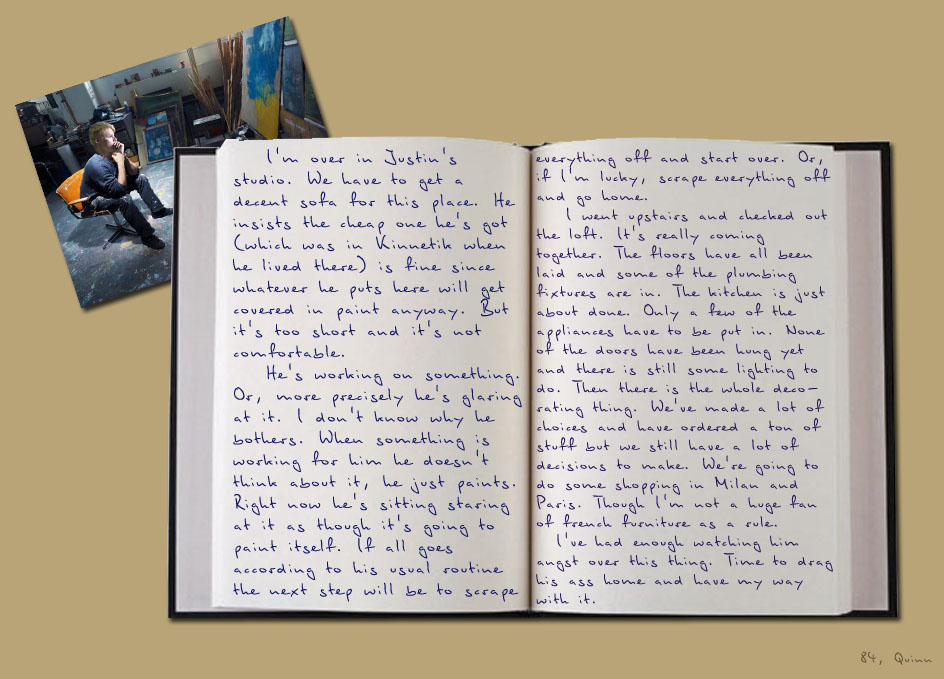 I'm over in Justin's
studio. We have to get a
decent sofa for this place. He
insists the cheap one he's got
(which was in Kinnetik when
he lived there) is fine since
whatever he puts here will get
covered in paint anyway. But
it's too short and it's not
comfortable.
He's working on something.
Or, more precisely he's glaring
at it. I don't know why he
bothers. When something is
working for him he doesn't
think about it, he just paints.
Right now he's sitting staring
at it as though it's going to
paint itself. If all goes
according to his usual routine
the next step will be to scrape
everything off and start over. Or,
if I'm lucky, scrape everything off
and go home.
I went upstairs and checked out
the loft. It's really coming
together. The floors have all been
laid and some of the plumbing
fixtures are in. The kitchen is just
about done. Only a few of the
appliances have to be put in. None
of the doors have been hung yet
and there is still some lighting to
do. Then there is the whole deco-
rating thing. We've made a lot of
choices and have ordered a ton of
stuff but we still have a lot of
decisions to make. We're going to
do some shopping in Milan and
Paris. Though I'm not a huge fan
of french furniture as a rule.
I've had enough watching him
angst over this thing. Time to drag
his ass home and have my way
with it.
84, Quinn